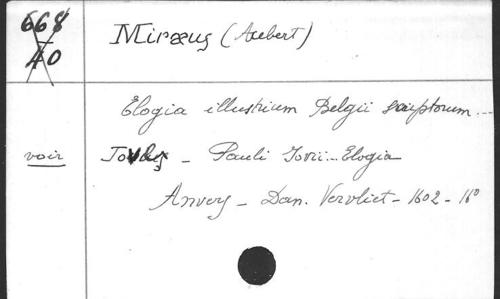 668
40
Miræus (Aubert)
Elogia illustrium Belgii scriptorum...
voir Jovius - Pauli Jovii... Elogia
Anvers - Dan. Vervliet - 1602 - 16°